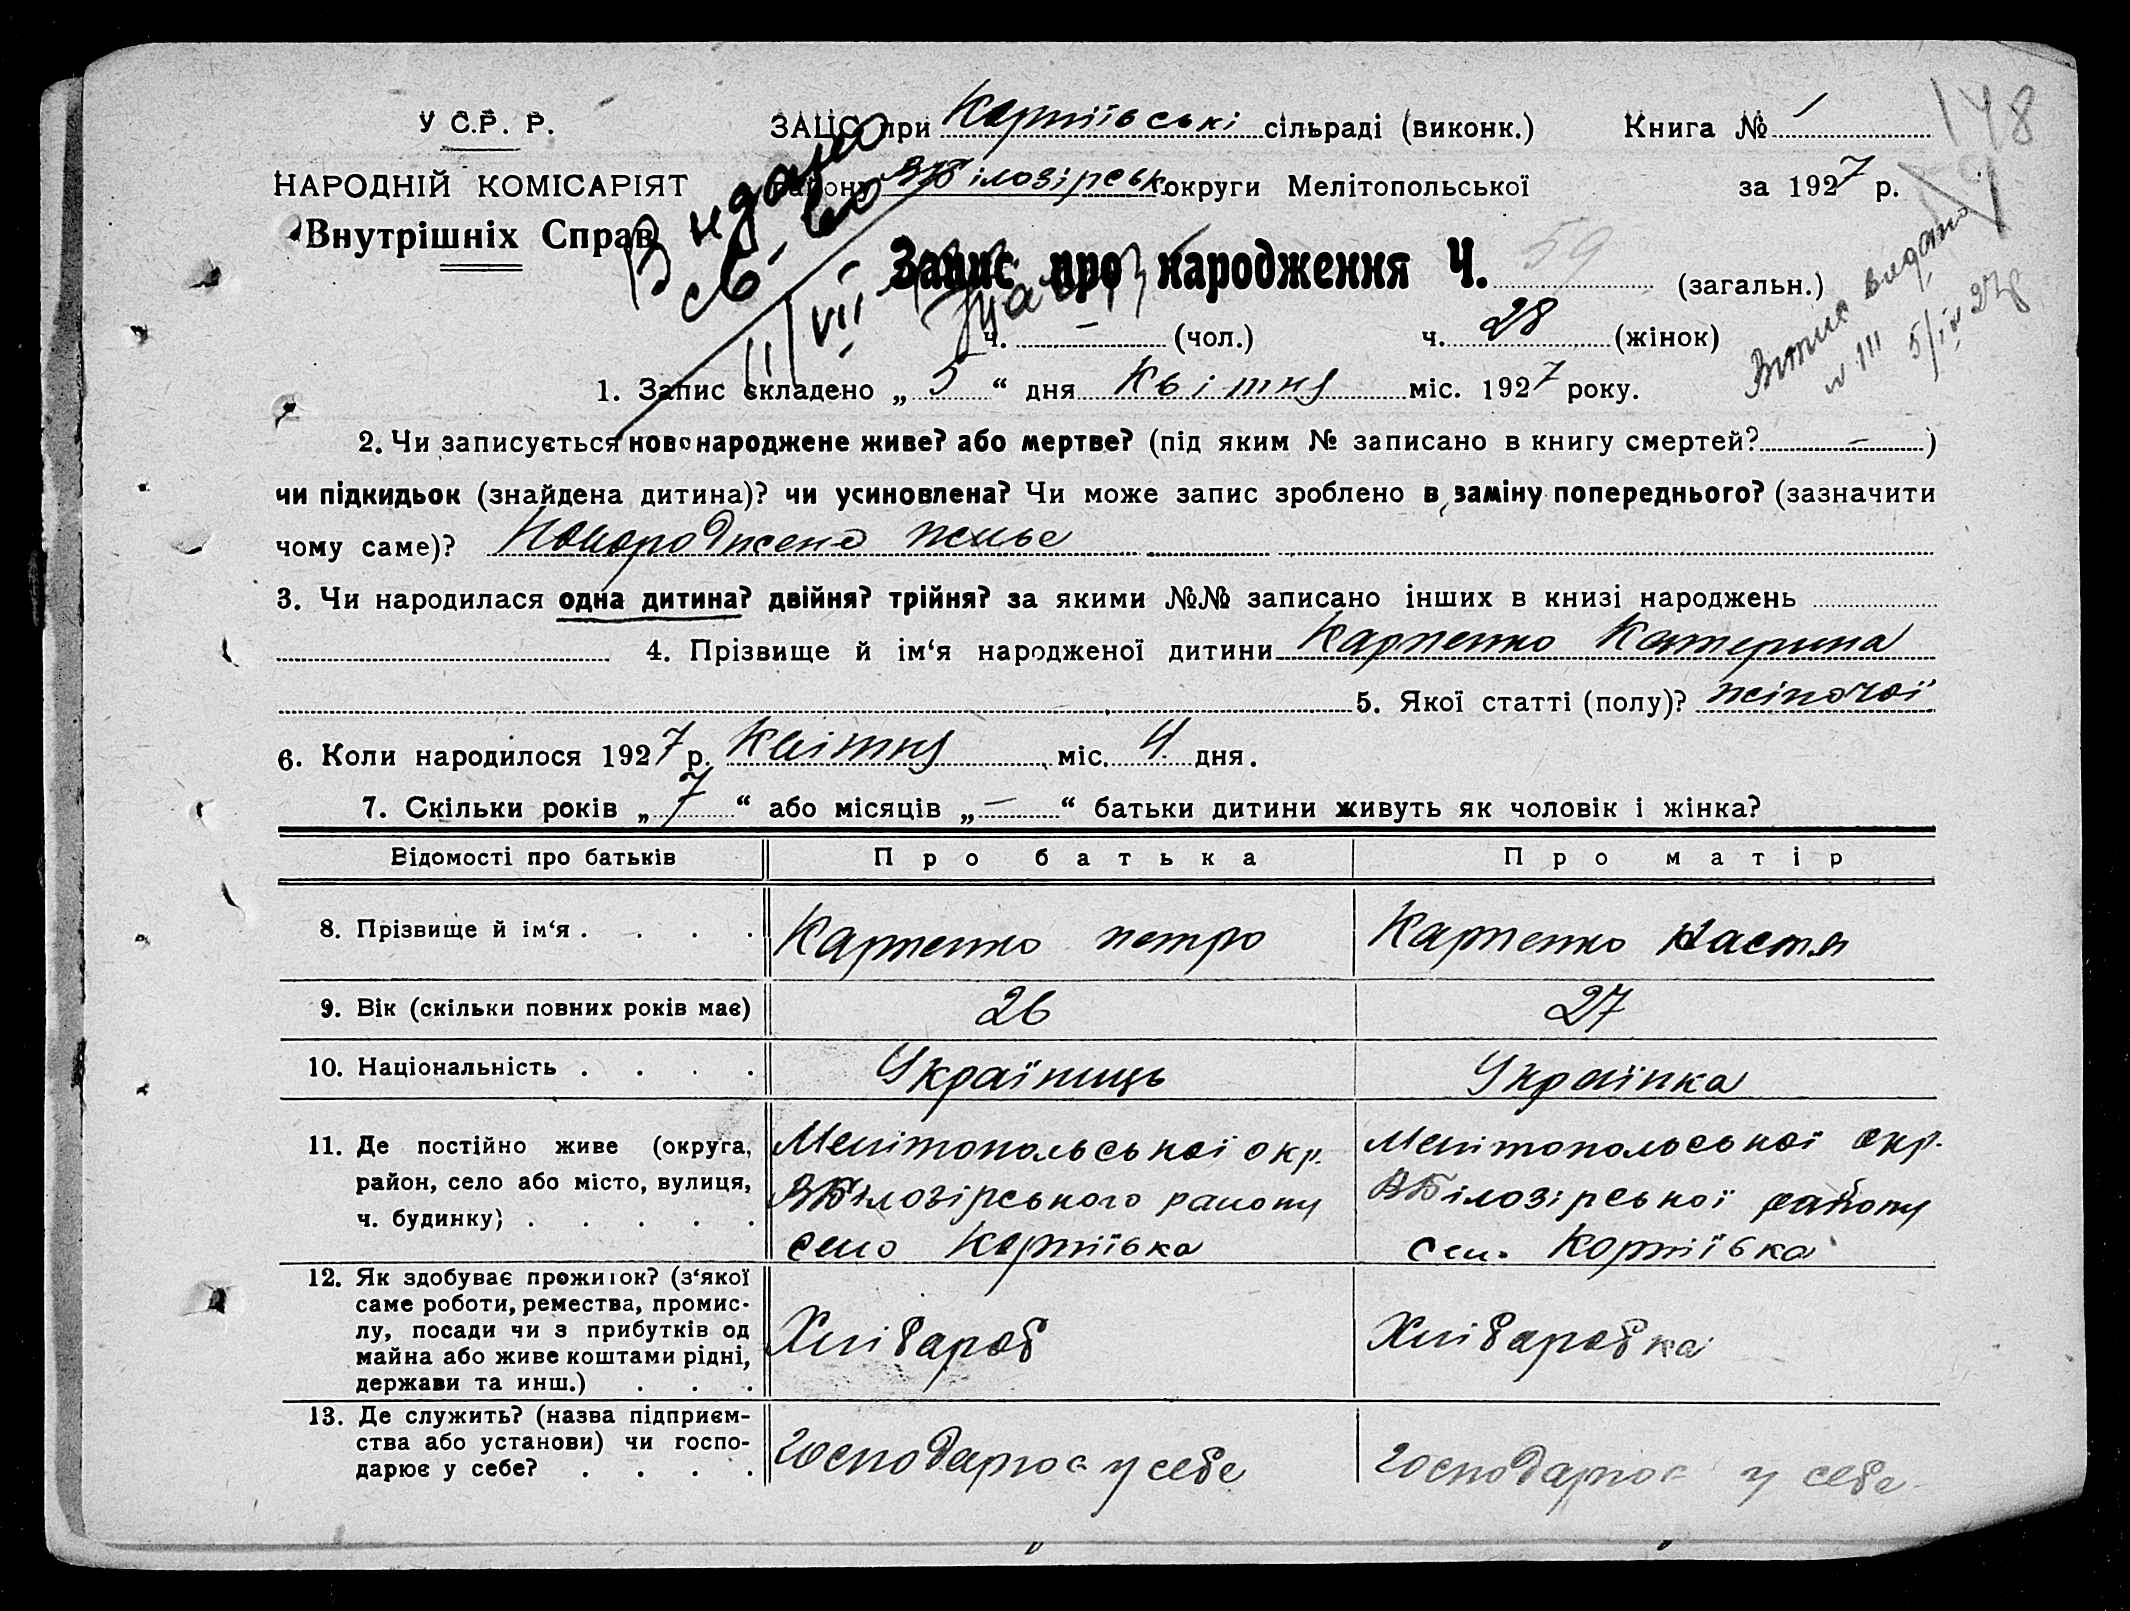 У С.Р. Р. ЗАЦС при сільраді (виконк.) Книга № 1 148
НАРОДНІЙ КОМІСАРІЯТ району ВБілозірськ. округи Мелітопольської за 1927 р.
Внутрішніх Справ
Видано
св-во
11/VII
Запис про народження Ч. 59 (загальн.)
ч. – (чол.) ч. 28 (жінок)
видано
№ 111 5/IV 27р
1. Запис складено „ 5 “ дня Квітня міс. 1927 року.
2. Чи записується новонароджене живе? або мертве? (під яким № записано в книгу смертей? – )
чи підкидьок (знайдена дитина)? чи усиновлена? Чи може запис зроблено в заміну попереднього? (зазначити
чому саме)? Новороджено живе
3. Чи народилася одна дитина? двійня? трійня? за якими №№ записано інших в книзі народжень
4. Прізвище й ім‘я народженої дитини Карпенко Катерина
5. Якої статті (полу)? жіночої
6. Коли народилося 1927 р. Квітня міс. 4 дня.
7. Скільки років „ 7 “ або місяців „ – “ батьки дитини живуть як чоловік і жінка?
Відомості про батьків Про батька Про матір
8. Прізвище й ім‘я . . . . Карпенко петро Карпенко Настя
9. Вік (скільки повних років має) 26 27
10. Національність . . . . Україниць Українка
11. Де постійно живе (округа, Мелітопольської окр. Мелітопольської окр.
район, село або місто, вулиця, ВБілозірського району ВБілозірської району
ч. будинку) . . . . . село сел.
12. Як здобуває прожиток? (з‘якої
саме роботи, ремества, промис-
лу, посади чи з прибутків од Хлібароб Хлібаробка
майна або живе коштами рідні,
держави та инш.) . . .
13. Де служить? (назва підприєм-
ства або установи) чи госпо- господарює у себе господарює у себе
дарює у себе? . . . .